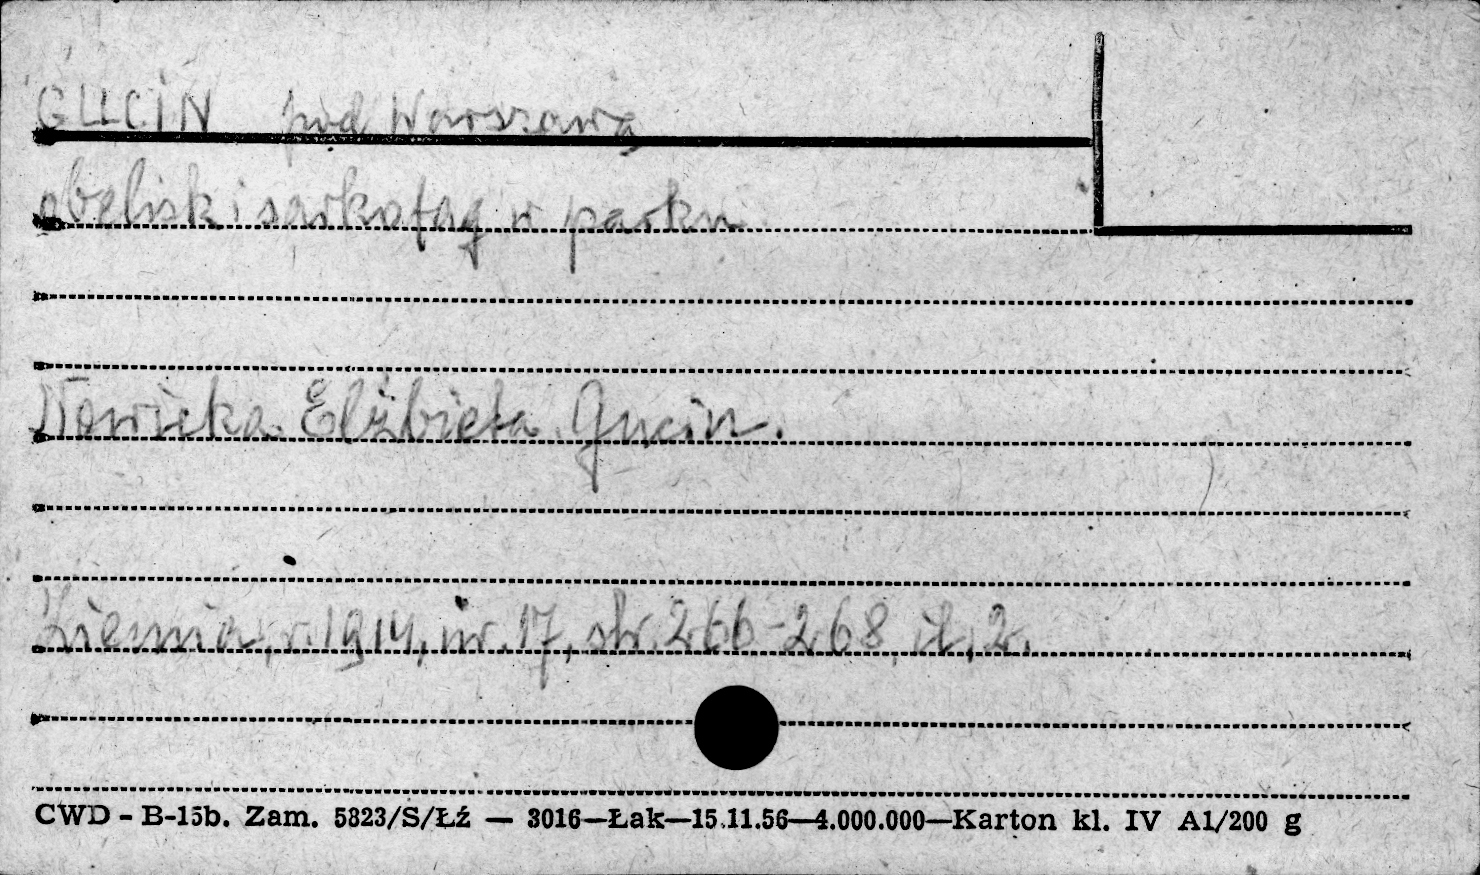 GUCIN pod Warszawą
obelisk i sarkofag w parku
Nowicka Elżbieta Gucin.
Ziemia, r. 1914, nr. 17, str. 266-268, il. 2.
CWD - B-15b. Zam. 5823/S/Łź — 3016—Łak—15.11.56—4.000.000—Karton kl. IV A1/200 g